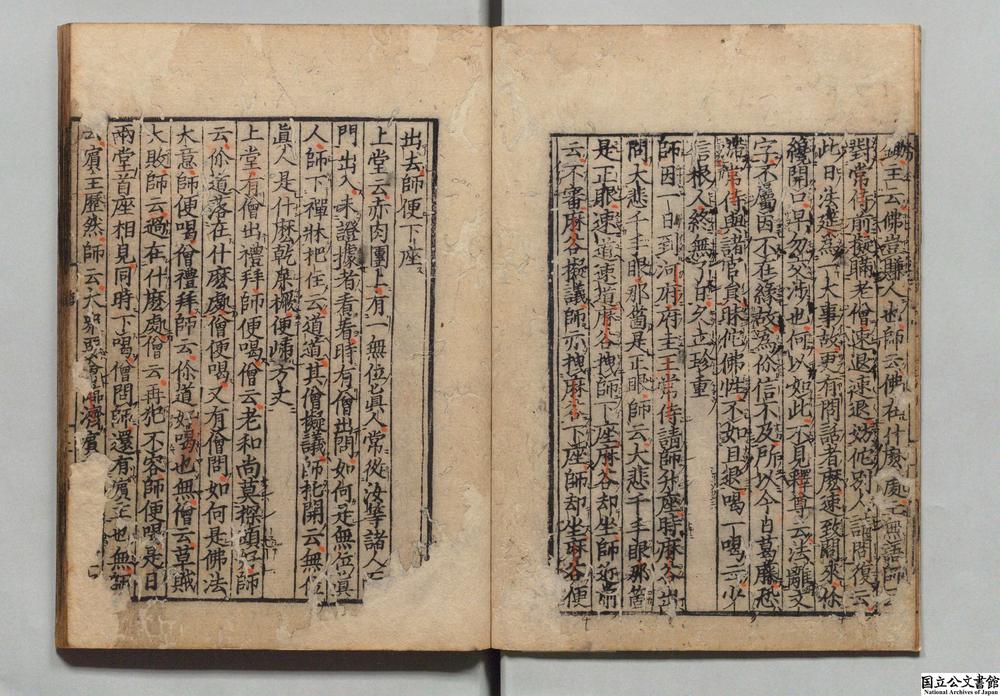 主云佛豈賺人也師云佛在什麼處主無語師云
對常侍前擬瞞老僧速退速退妨他別人請問復云
此日法筵為一大事故更有問話者麼速致問來你
纔開口早勿交涉也何以如此不見釋尊云法離文
字不屬因不在緣故為你信不及所以今日葛藤恐
滯常侍與諸官員昧他佛性不如且退喝一喝云少
信根人終無了日久立珍重
師因一日到河府府主王常侍請師升座時麻谷出
問大悲千手眼那箇是正眼師云大悲千手眼那箇
是正眼速道速道麻谷拽師下座麻谷却坐師近前
云不審麻谷擬議師亦拽麻谷下座師却坐麻谷便
出去師便下座
上堂云赤肉團上有一無位眞人常從汝等諸人
門出入未證據者看看時有僧出問如何是無位眞
人師下禪牀把住云道道其僧擬議師托開云無位
眞人是什麼乾屎橛便歸方丈
上堂有僧出禮拜師便喝僧云老和尚莫探頭好師
云你道落在什麼處僧便喝又有僧問如何是佛法
大意師便喝僧禮拜師云你道好喝也無僧云草賊
大敗師云過在什麼處僧云再犯不容師便喝是日
兩堂首座相見同時下喝僧問師還有賓主也無師
云賓主歷然師云大眾要會臨濟賓
国立公文書館
National Archives of Japan